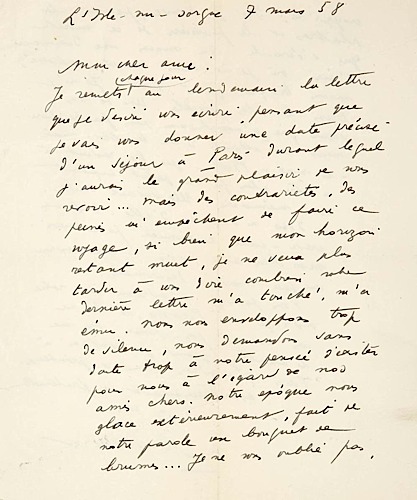 L'Isle-sur-Sorgue 7 mars 58
Mon cher ami :
chaque jour
Je remets au lendemain la lettre
que je désire vous écrire, pensant que
je vais vous donner une date précise
d'un séjour à Paris durant lequel
j'aurais le grand plaisir de vous
revoir... mais des contrariétés, des
peines m'empêchent de faire ce
voyage, si bien que mon horizon
restant muet, je ne veux plus
tarder à vous dire combien votre
dernière lettre m'a touché, m'a
ému. Nous nous enveloppons trop
de silence, nous demandons sans
doute trop à notre pensée d'exister
pour nous à l'égard de nos
amis chers. Notre époque nous
glace extérieurement, fait de
notre parole un bouquet de
brumes... Je ne vous oublie pas,